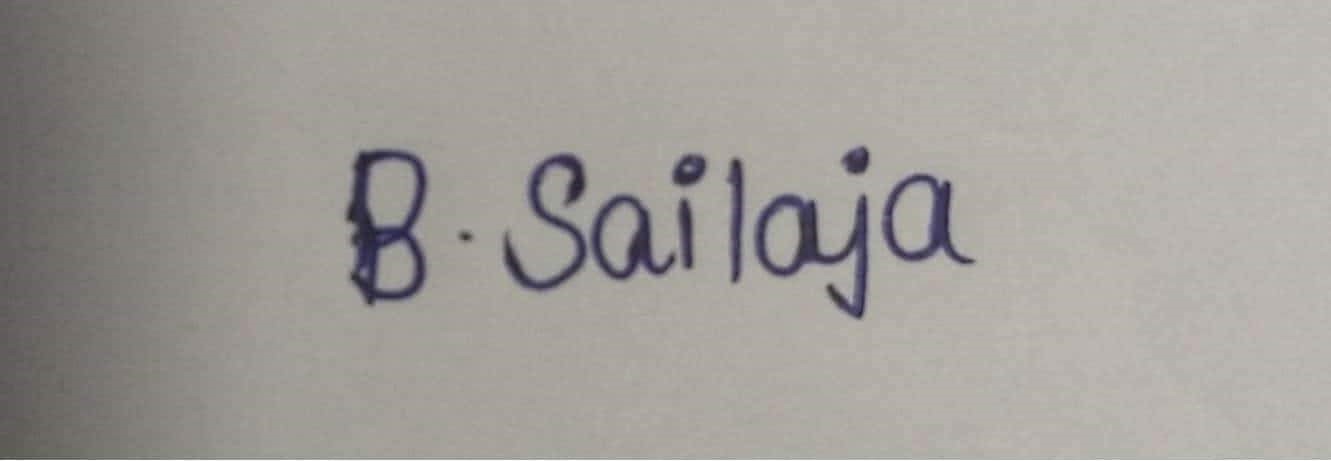 B. Sailaja